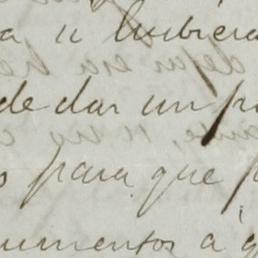 a si hubiera
de dar un p
s para que p
umentos a q